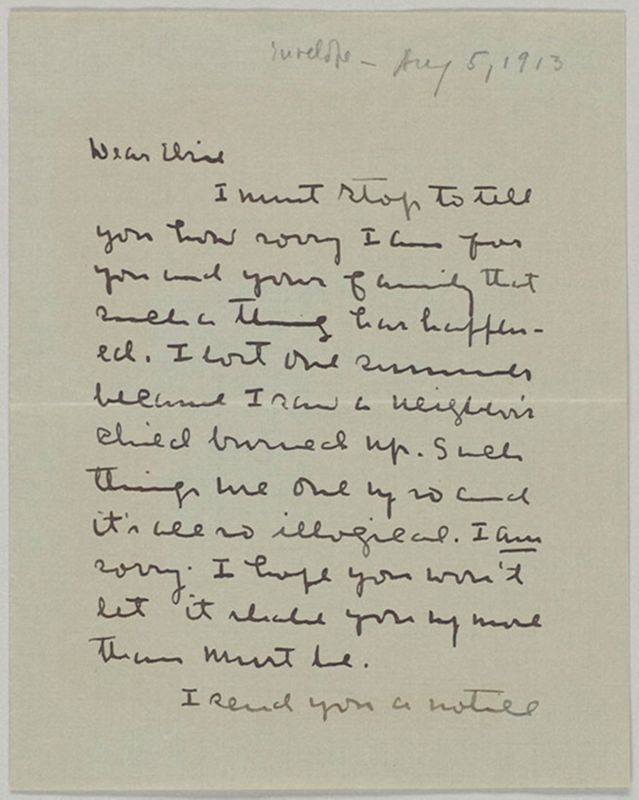 Envelope — Aug 5, 1913
Dear Elsie
I must stop to tell
you how sorry I am for
you and your family that
such a thing has happen-
ed. I lost one summer
because I saw a neighbor's
child burned up. Such
things use one up so and
it's all so illogical. I am
sorry. I hope you won't
let it shake you up more
than must be.
I send you a notice